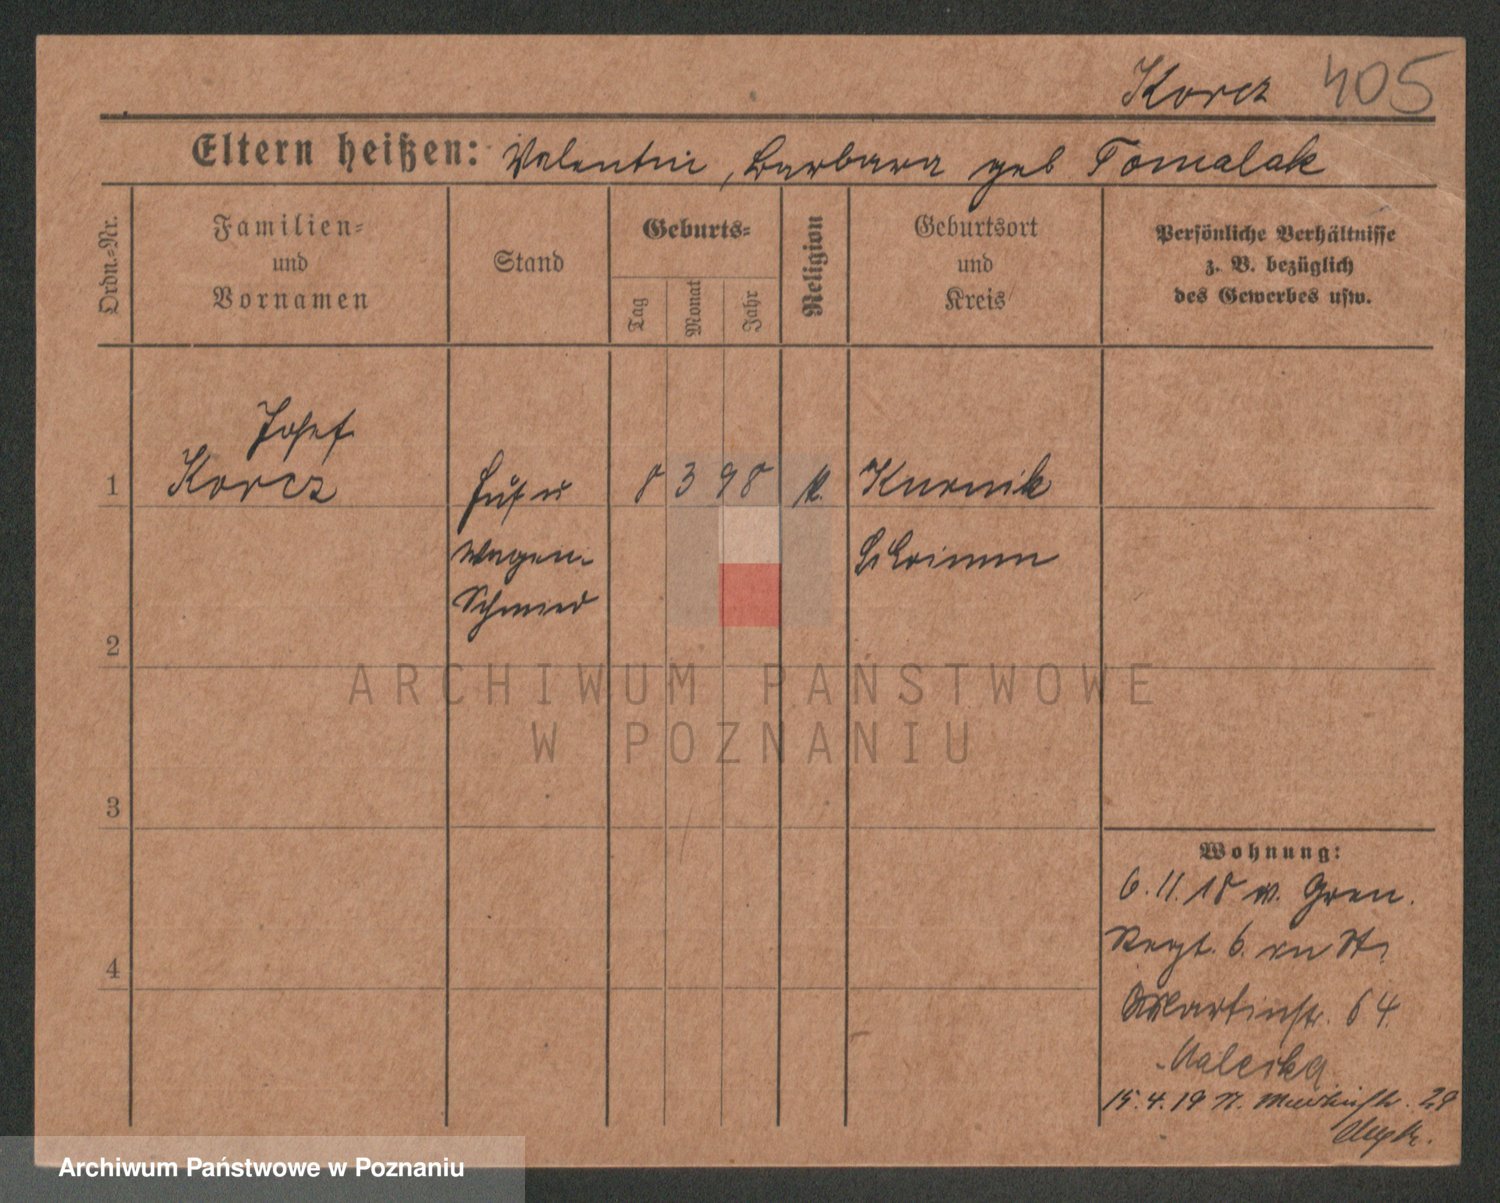 Korcz 405
Eltern heißen: Valentin, Barbara geb Tomalak
Ordn.-Nr.
Familien-
und
Vornamen
Stand
Geburts-
Tag
Monat
Jahr
Religion
Geburtsort
und
Kreis
Persönliche Verhältnisse
z. B. bezüglich
des Gewerbes usw.
Josef
1 Korcz
Huf u
Wagen-
Schmied
8 3 98 k. Kurnik
Schrimm
2
3
4
Wohnung:
6.11.18 v. Gren.
Regt. 6. in St.
Martinstr. 64.
15.4.19 Martinstr. 29
ARCHIWUM PAŃSTWOWE
W POZNANIU
Archiwum Państwowe w Poznaniu